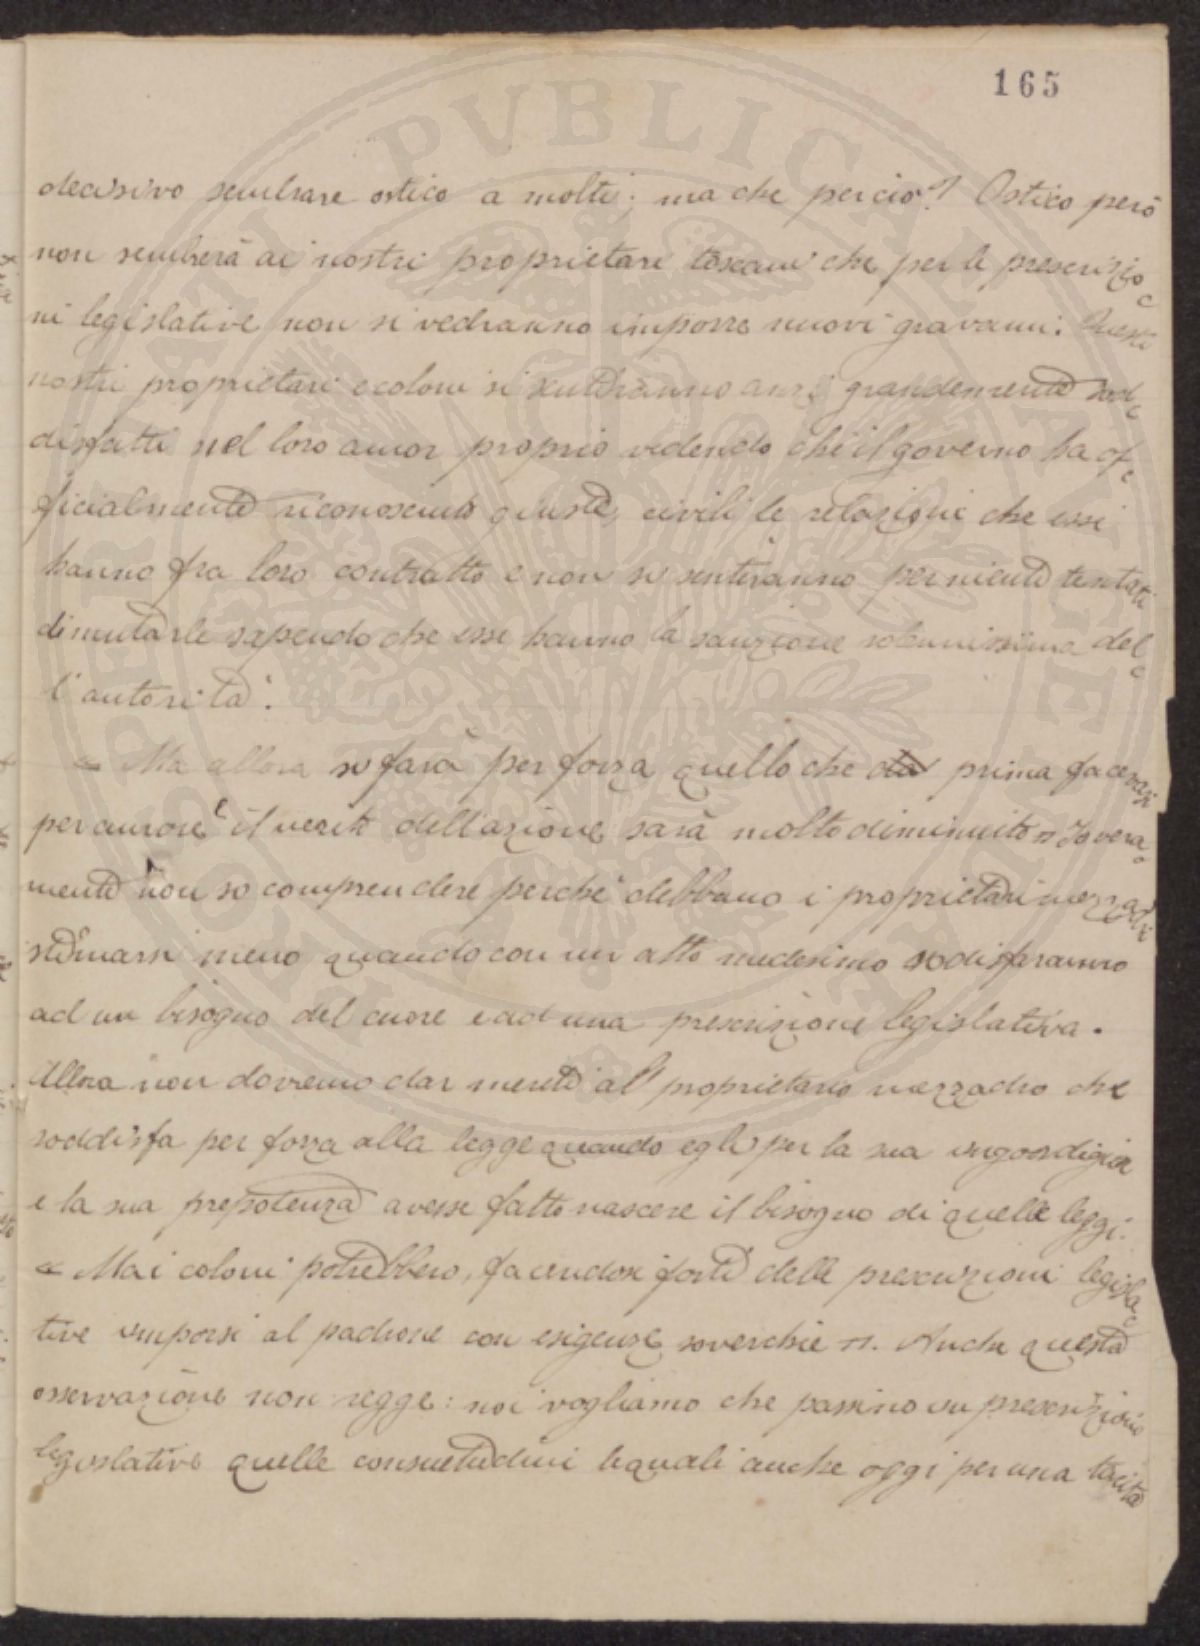 165
decisivo sembrare ostico a molti; ma che perciò? Ostico però
non sembrerà ai nostri proprietari toscani che per le prescrizio=
ni legislative non si vedranno imporre nuovi gravami. Questi
nostri proprietari e coloni si sentiranno anzi grandemente sod=
disfatti nel loro amor proprio vedendo che il governo ha of=
ficialmente riconosciuto giuste, civili le relazioni che essi
hanno fra loro contratto e non si sentiranno per niente tentati
di mutarle sapendo che esse hanno la sanzione solennissima del=
l'autorità.
« Ma allora si farà per forza quello che prima facevasi
per amore e il merito dell'azione sarà molto diminuito » Io vera=
mente non so comprendere perchè debbano i proprietari mezzadri
stimarsi meno quando con un atto medesimo sodisfaranno
ad un bisogno del cuore e ad una prescrizione legislativa.
Allora non dovremo dar merito al proprietario mezzadro che
soddisfa per forza alla legge quando egli per la sua ingordigia
e la sua prepotenza avesse fatto nascere il bisogno di quelle leggi.
« Ma i coloni potrebbero, facendosi forti delle prescrizioni legisla=
tive imporsi al padrone con esigenze soverchie ». Anche questa
osservazione non regge: noi vogliamo che passino in prescrizioni
legislative quelle consuetudini le quali anche oggi per una tacita